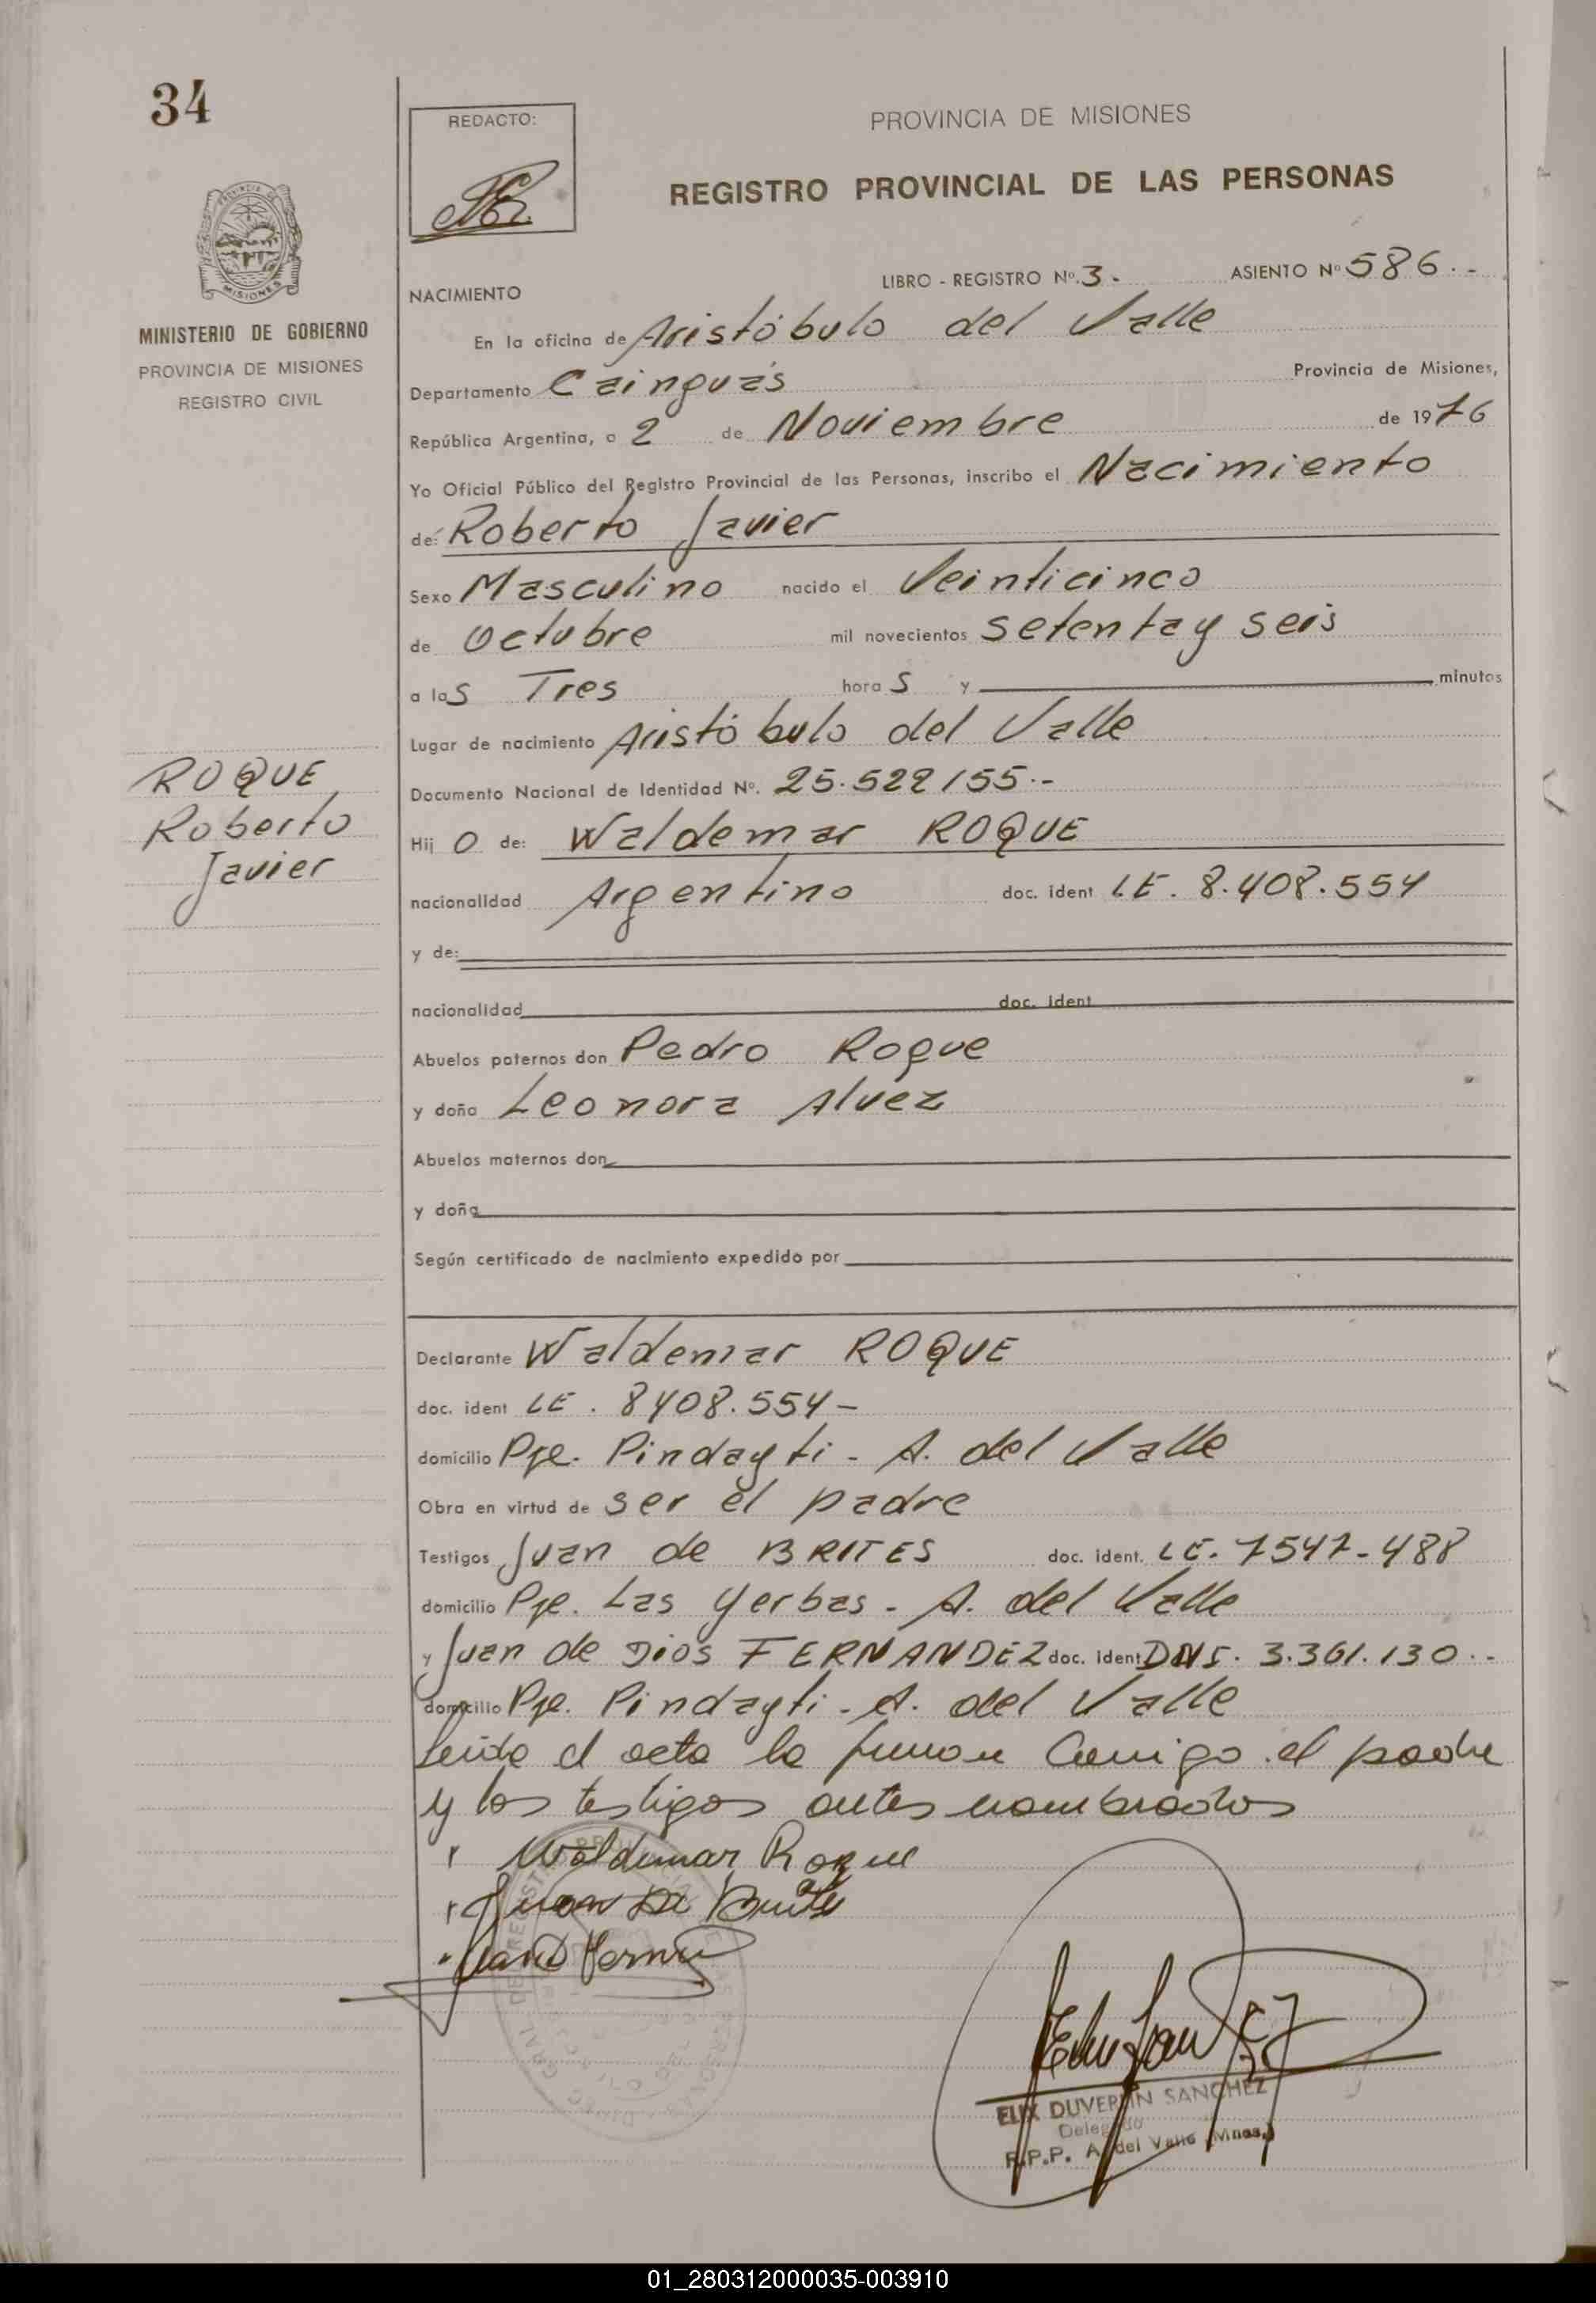 34
REDACTO:
PROVINCIA DE MISIONES
REGISTRO PROVINCIAL DE LAS PERSONAS
MISIONES
MINISTERIO DE GOBIERNO
PROVINCIA DE MISIONES
REGISTRO CIVIL
LIBRO - REGISTRO Nº. 3.- ASIENTO Nº 586.-
NACIMIENTO
En la oficina de Aristóbulo del Valle
Departamento Cainguás Provincia de Misiones,
República Argentina, a 2 de Noviembre de 1976
Yo Oficial Público del Registro Provincial de las Personas, inscribo el Nacimiento
de: Roberto Javier
Sexo Masculino nacido el Veinticinco
de Octubre mil novecientos setenta y seis
a las Tres horas y minutos
Lugar de nacimiento Aristóbulo del Valle
ROQUE
Roberto
Javier
Documento Nacional de Identidad Nº. 25.522155.-
Hijo de: Waldemar ROQUE
nacionalidad Argentino doc. ident LE. 8.408.554
y de:
nacionalidad doc. ident
Abuelos paternos don Pedro Roque
y doña Leonora Alvez
Abuelos maternos don
y doña
Según certificado de nacimiento expedido por
Declarante Waldemar ROQUE
doc. ident LE. 8408.554-
domicilio Pje. Pindayti - A. del Valle
Obra en virtud de ser el padre
Testigos Juan de BRITES doc. ident. LE. 7547-488
domicilio Pje. Las Yerbas - A. del Valle
y Juan de Dios FERNANDEZ doc. ident DNI. 3.361.130.-
domicilio Pje. Pindayti - A. del Valle
Leida el acta la firman Conmigo el padre
y los testigos antes nombrados
Waldemar Roque
Juan De Brites
ELIX DUVERLIN SANCHEZ
Delegado
R.P.P. A. del Valle (Mnes.)
01_280312000035-003910